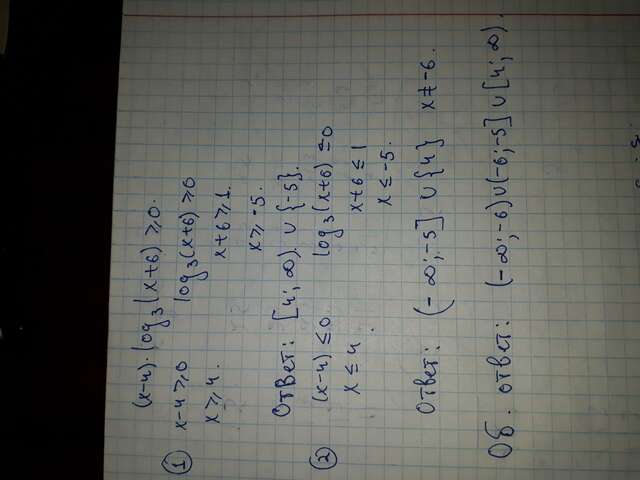 (x-4)·log₃(x+6) ≥ 0.
① x-4 ≥ 0 log₃(x+6) ≥ 0
x ≥ 4. x+6 ≥ 1.
x ≥ -5.
Ответ: [4; ∞) ∪ {-5}.
② (x-4) ≤ 0. log₃(x+6) ≤ 0
x ≤ 4. x+6 ≤ 1
x ≤ -5.
Ответ: (-∞; -5] ∪ {4} x ≠ -6.
Об. ответ: (-∞; -6) ∪ (-6; -5] ∪ [4; ∞).